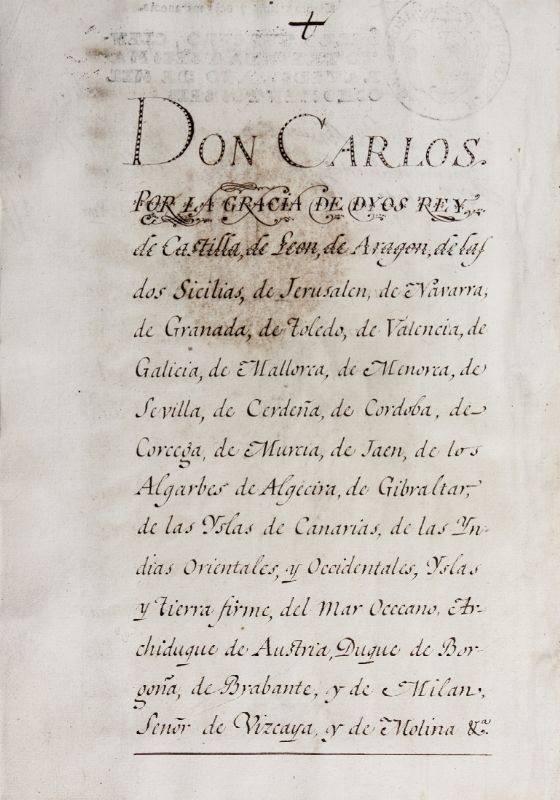 DON CARLOS.
POR LA GRACIA DE DYOS REY
de Castilla, de Leon, de Aragon, de las
dos Sicilias, de Jerusalen, de Navarra,
de Granada, de Toledo, de Valencia, de
Galicia, de Mallorca, de Menorca, de
Sevilla, de Cerdeña, de Cordoba, de
Corcega, de Murcia, de Jaen, de los
Algarbes de Algecira, de Gibraltar,
de las Yslas de Canarias, de las Yn-
dias Orientales, y Occidentales, Yslas
y tierra firme, del Mar Occeano, Ar-
chiduque de Austria, Duque de Bor-
goña, de Brabante, y de Milan,
Señor de Vizcaya, y de Molina &ª.